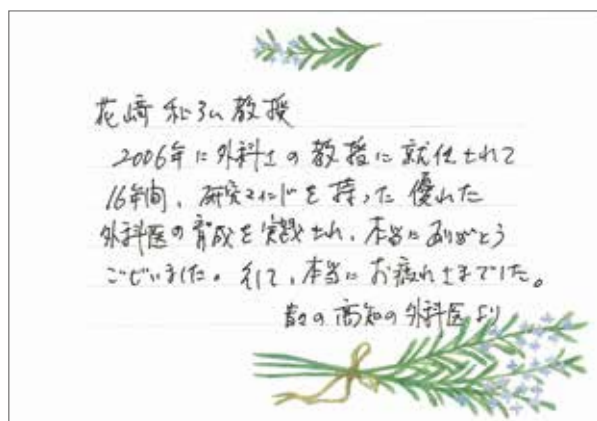 花崎 和弘 教授
2006年に外科1の教授に就任されて
16年間、研究マインドを持った優れた
外科医の育成を実践され、本当にありがとう
ございました。そして、本当にお疲れさまでした。
数々の高知の外科医より